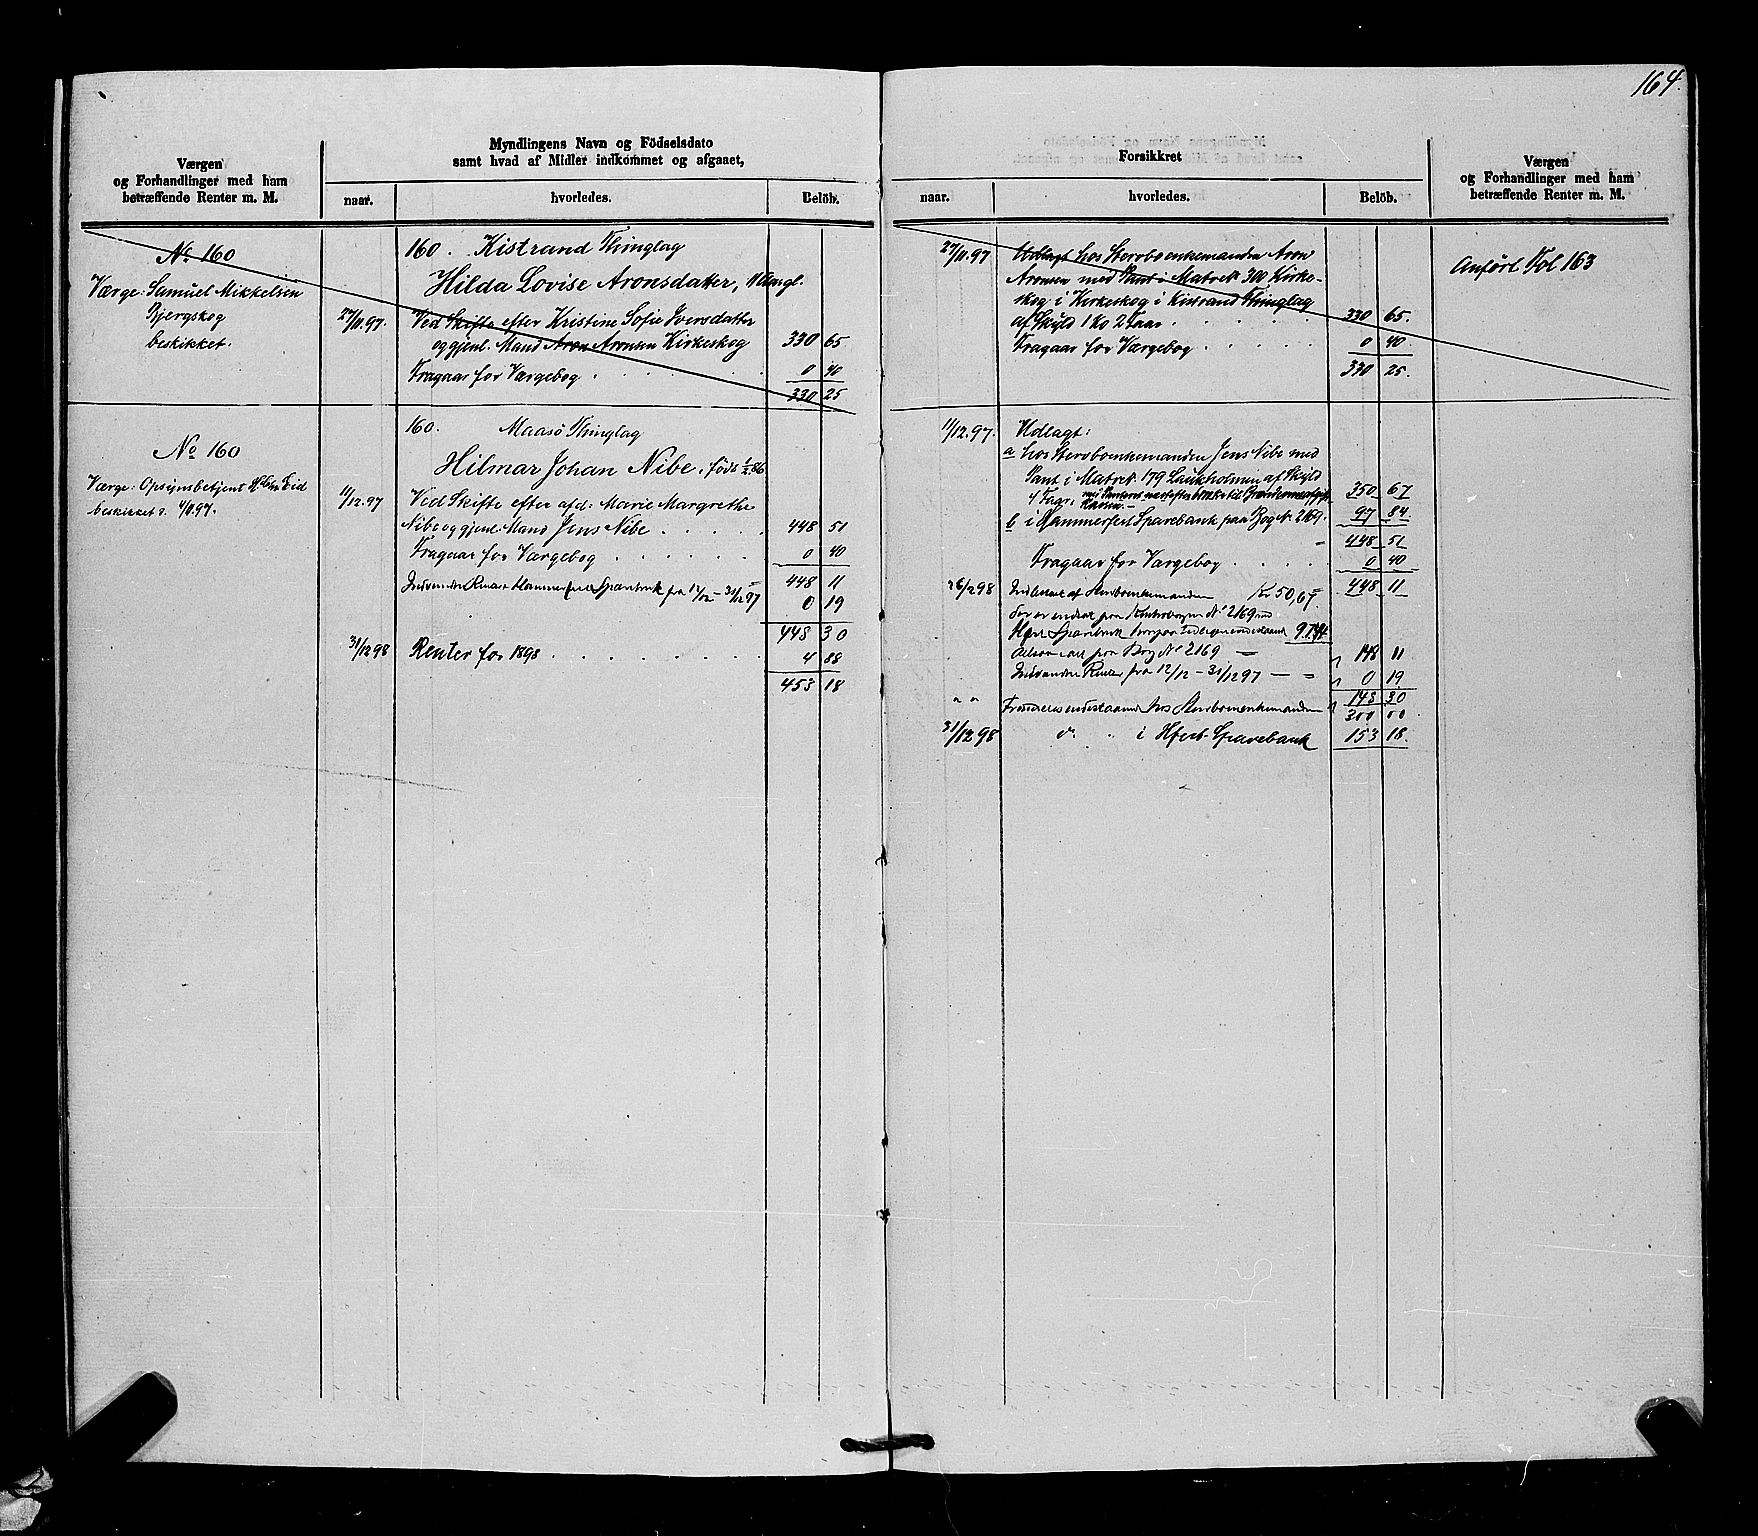 164.
Værgen
og Forhandlinger med ham
betræffende Renter m. M.
Myndlingens Navn og Födselsdato
samt hvad af Midler indkommet og afgaaet,
naar.
hvorledes.
Belöb.
No 160
Værge: Samuel Mikkelsen
Bjergskog
beskikket.
160. Kistrand Thinglag
Hilda Lovise Aronsdatter, 11 Aar gl.
27/11.97. Ved Skifte efter Kristine Sofie Iversdatter
og gjenl. Mand Aron Aronsen Kirkeskog 330 65
Fragaar for Værgebog . . . 0 40
330 25
No 160
Værge: Opsynsbetjent
beskikket 97.
160. Maasö Thinglag
Hilmar Johan Nibe, født 1/2.86
11/12.97 Ved Skifte efter afd. Marie Margrethe
Nibe og gjenl. Mand Jens Nibe . . . . . 448 51
Fragaar for Værgebog . . . . . 0 40
448 11
Indvundne Renter Hammerfest Sparebank fra 12/12 – 31/12 97 0 19
448 30
31/12 98 Renter for 1898 . . . . . . . . 4 88
453 18
Forsikkret
naar.
hvorledes.
Belöb.
Værgen
og Forhandlinger med ham
betræffende Renter m. M.
27/11.97 Udlagt hos Stervboenkemanden Aron
Aronsen med Pant i Matrek. 300 Kirke-
skog i Kirkeskog i Kistrand Thinglag
af Skyld 1 Ko 2 Faar . . . . . 330 65.
Fragaar for Værgebog . . . . . 0 40
330 25.
Anført Fol 163
11/12.97. Udlagt:
a hos Stervboenkemanden Jens Nibe med
Pant i Matrek. 179 Laukholmen af Skyld
350 67
b i Hammerfest Sparebank paa Bog No 2169. 97 84
448 51
Fragaar for Værgebog . . . . 0 40
26/2 98 Indbetalt af Stervboenkemanden Kr 50,67 448 11
No 2169
Sparebank 97.44
paa Bog No 2169 – 148 11
Indvundne Renter fra 12/12 – 31/12 97 – – 0 19
148 30
" " hos Stervboenkemanden 300 00
31/12 98 i Hfest Sparebank 153 18.